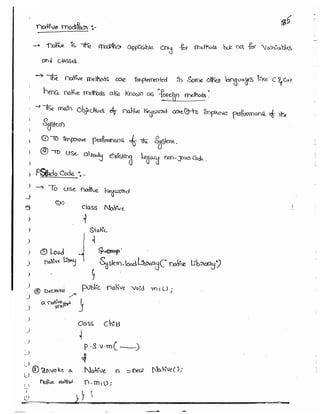 native modifier :-
→ native is the modifier applicable only for methods but not for variables
and classes.
→ The native methods are implemented in some other languages like C & C++
hence native methods also known as "foreign methods".
→ The main objectives of native keyword are to improve performance of the
System
① To improve performance of the System.
② To use already existing legacy non-java code.
Pseudo Code :-
→ To use native keyword
Ex:-
class Native
{
static
{
① Load
native library
System.loadLibrary("native library")
}
② Declare
a native method
public native void m1();
}
class Child
{
p.s.v.m(—)
{
③ Invoke a
native method
Native n = new Native();
n.m1();
} }